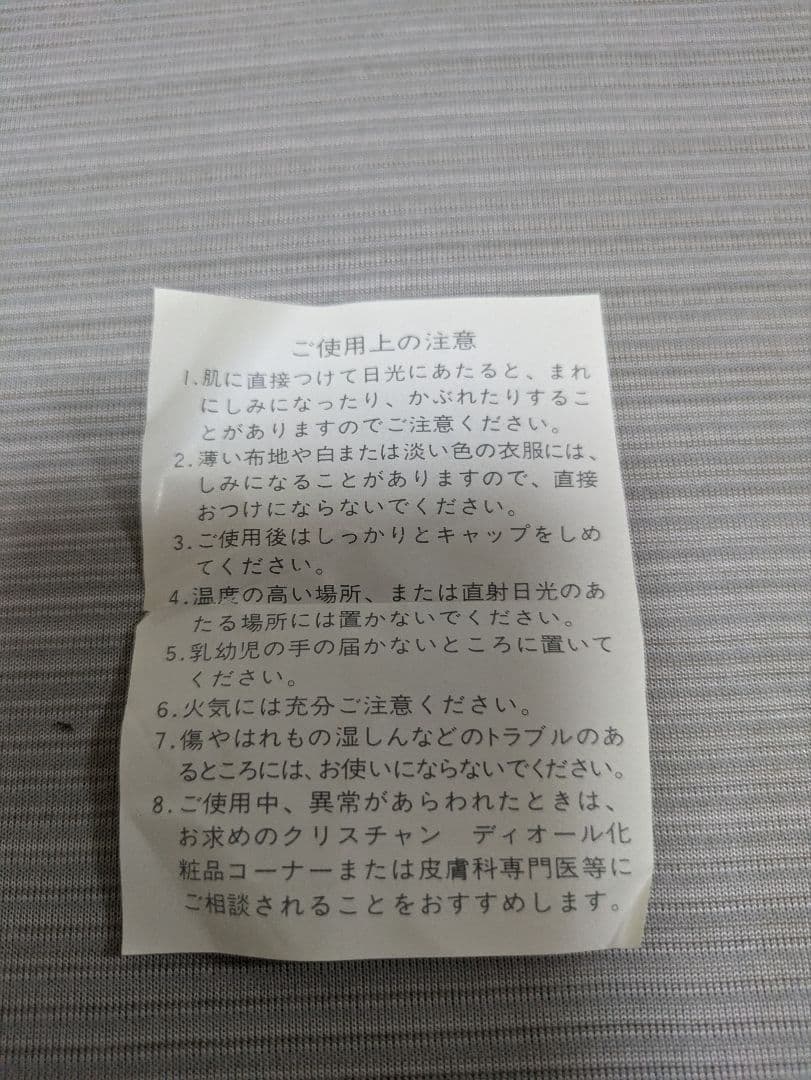 ご使用上の注意
1.肌に直接つけて日光にあたると、まれ
にしみになったり、かぶれたりするこ
とがありますのでご注意ください。
2.薄い布地や白または淡い色の衣服には、
しみになることがありますので、直接
おつけにならないでください。
3.ご使用後はしっかりとキャップをしめ
てください。
4.温度の高い場所、または直射日光のあ
たる場所には置かないでください。
5.乳幼児の手の届かないところに置いて
ください。
6.火気には充分ご注意ください。
7.傷やはれもの湿しんなどのトラブルのあ
るところには、お使いにならないでください。
8.ご使用中、異常があらわれたときは、
お求めのクリスチャン　ディオール化
粧品コーナーまたは皮膚科専門医等に
ご相談されることをおすすめします。